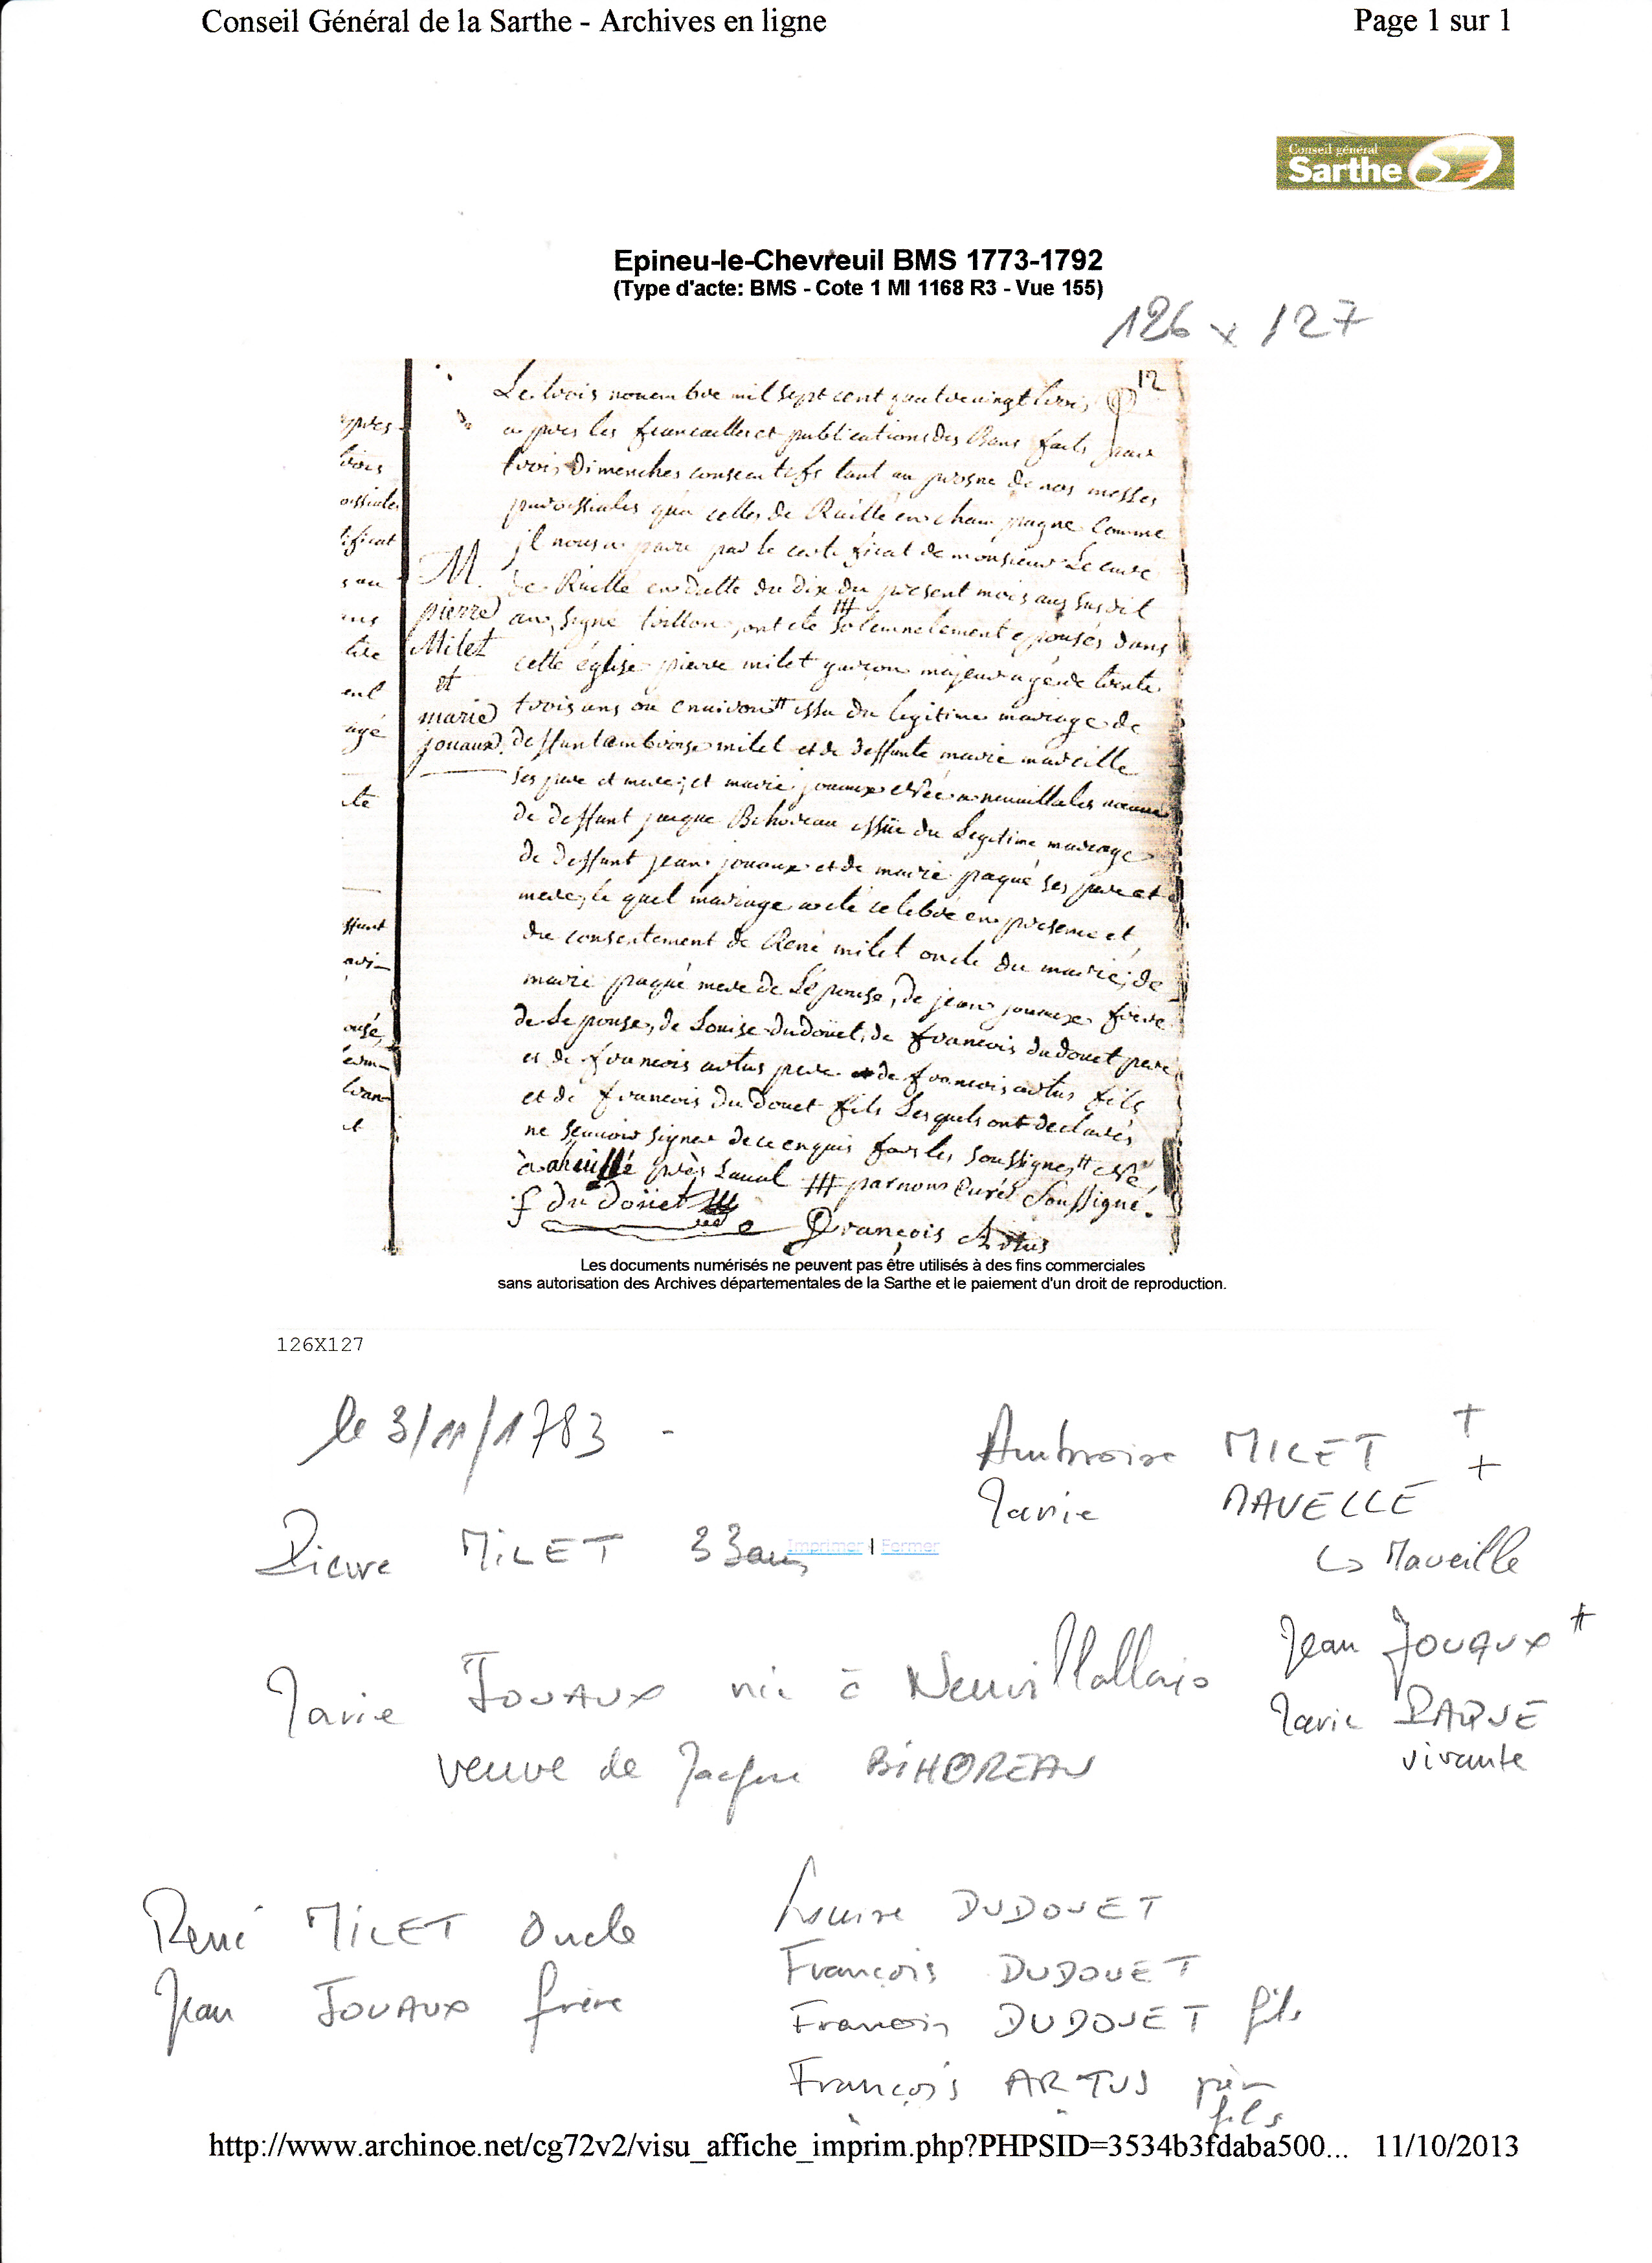 Conseil Général de la Sarthe - Archives en ligne Page 1 sur 1
Conseil général
Sarthe
Epineu-le-Chevreuil BMS 1773-1792
(Type d'acte: BMS - Cote 1 MI 1168 R3 - Vue 155)
126 x 127
12
Le trois novembre mil sept cent quatrevingt trois
apres les fiancailles et publications des Bans faits par
trois dimenches consecutifs tant au prosne de nos messes
paroissiales qu'a celles de Ruillé en champagne comme
jl nous a paru par le certificat de monsieur Le curé
de Ruillé en datte du dix du present mois
an, signé ont ete solemnelement epousés dans
cette église pierre milet garcon majeur agé de trente
trois ans ou environ # issu du legitime mariage de
deffunt ambroise milet et de deffunte marie maveille
ses pere et mere; et marie jouaux neuvillalais
de deffunt jaque Bihoreau issüe du Legitime mariage
de deffunt jean jouaux et de marie paqué ses pere et
mere, le quel mariage a eté celebré en presence et
du consentement de René milet oncle du marié, de
marie paqué mere de L'épouse, de jean jouaux frere
de Lepouse, de Louise dudoüet, de francois dudouet pere
et de francois artus pere et de francois artus fils
et de francois dudouet fils Lesquels ont declarés
ne scauoir signer de ce enquis fors les soussignes # né
à ahuillé près Laval ## par nous Curé Soussigné.
f du doüet
François Artus
M.
pierre
Milet
et
marie
jouaux
Les documents numérisés ne peuvent pas être utilisés à des fins commerciales
sans autorisation des Archives départementales de la Sarthe et le paiement d'un droit de reproduction.
126X127
le 3/11/1783 -
Ambroise MILET +
Marie MAVELLE +
↳ Maveille
Pierre MILET 33 ans
Imprimer | Fermer
Jean JOUAUX +
Marie JOUAUX née à Neuvillallais
Marie PAQUE
vivante
veuve de Jacques BIHOREAU
René MILET Oncle
Jean JOUAUX frère
Louise DUDOUET
François DUDOUET
François DUDOUET fils
François ARTUS père
fils
http://www.archinoe.net/cg72v2/visu_affiche_imprim.php?PHPSID=3534b3fdaba500... 11/10/2013